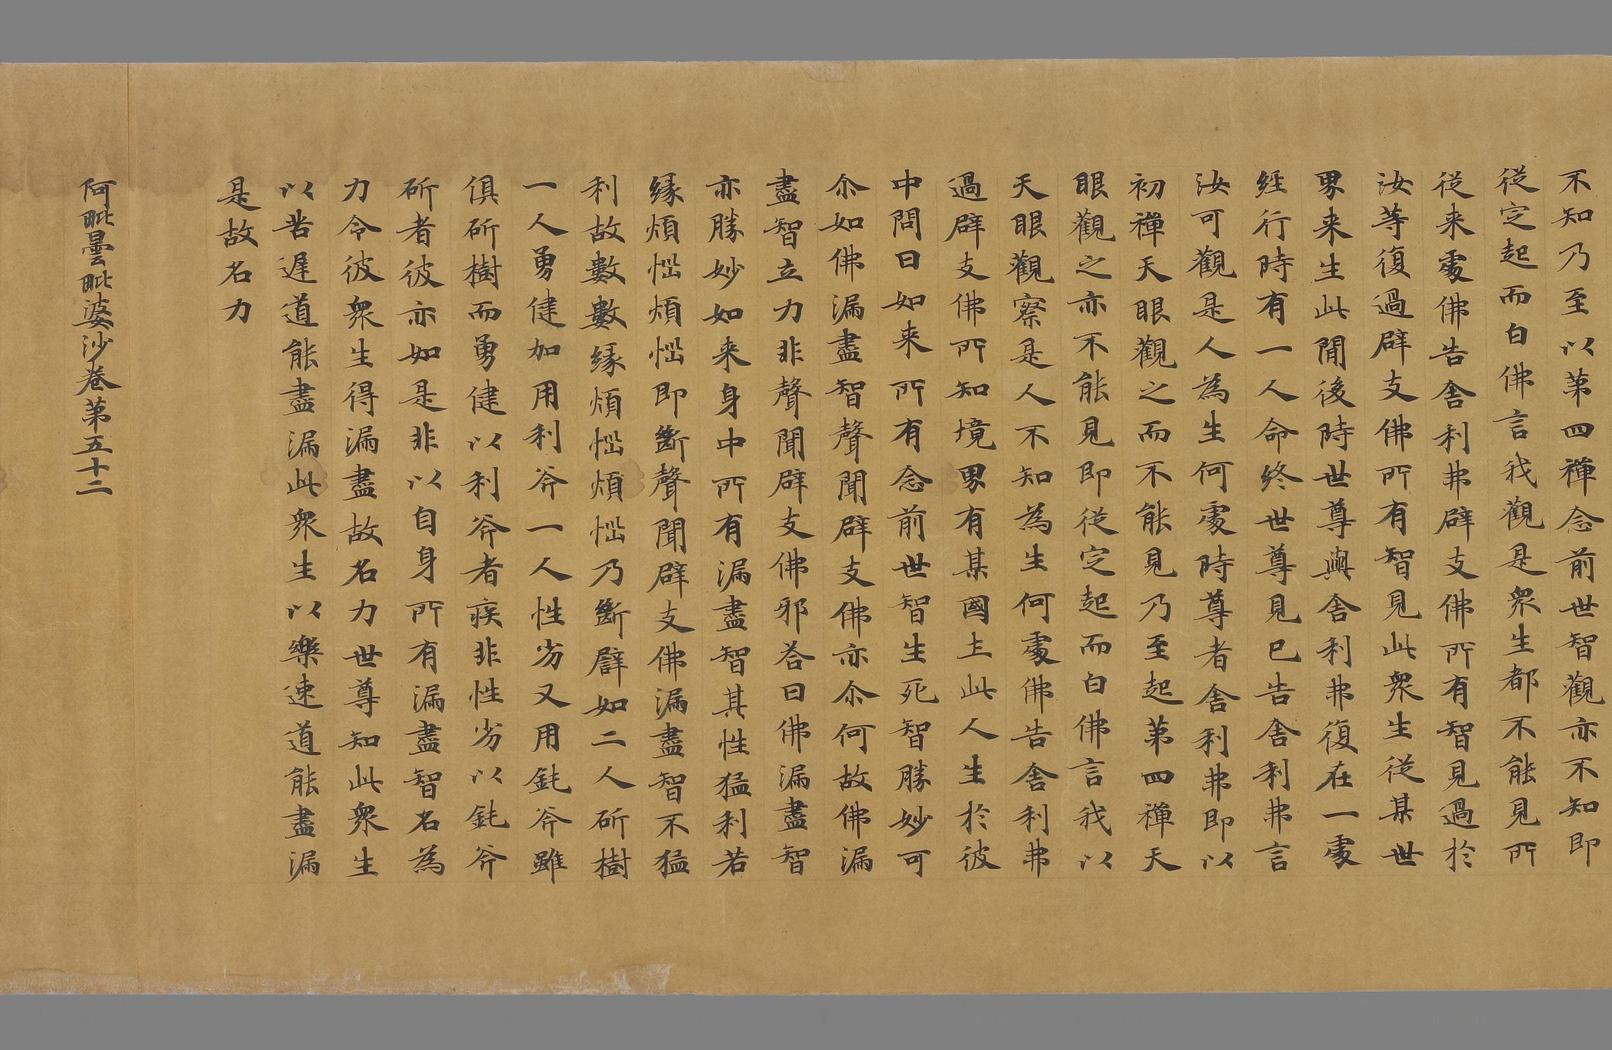 不知乃至以第四禪念前世智觀亦不知即
從定起而白佛言我觀是衆生都不能見所
從来處佛告舍利弗辟支佛所有智見過於
汝等復過辟支佛所有智見此衆生從某世
界来生此間後時世尊與舍利弗復在一處
經行時有一人命終世尊見已告舍利弗言
汝可觀是人為生何處時尊者舍利弗即以
初禪天眼觀之而不能見乃至起第四禪天
眼觀之亦不能見即從定起而白佛言我以
天眼觀察是人不知為生何處佛告舍利弗
過辟支佛所知境界有某國土此人生於彼
中問曰如来所有念前世智生死智勝妙可
尒如佛漏盡智聲聞辟支佛亦尒何故佛漏
盡智立力非聲聞辟支佛邪荅曰佛漏盡智
亦勝妙如来身中所有漏盡智其性猛利若
緣煩惱煩惱即斷聲聞辟支佛漏盡智不猛
利故數數緣煩惱煩惱乃斷譬如二人斫樹
一人勇健加用利斧一人性劣又用鈍斧雖
俱斫樹而勇健以利斧者疾非性劣以鈍斧
斫者彼亦如是非以自身所有漏盡智名為
力令彼衆生得漏盡故名力世尊知此衆生
以苦遲道能盡漏此衆生以樂速道能盡漏
是故名力
阿毗曇毗婆沙卷第五十二